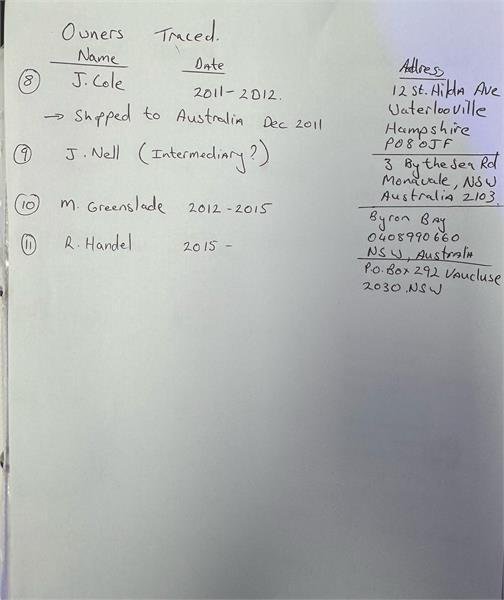 Owners Traced.
Name Date Address
⑧ J. Cole 2011-2012. 12 St. Hilda Ave
Waterlooville
→ Shipped to Australia Dec 2011 Hampshire
PO8 0JF
⑨ J. Nell (Intermediary?) 3 By the Sea Rd
Monavale, NSW
Australia 2103.
⑩ M. Greenslade 2012-2015 Byron Bay
0408990660
NSW, Australia
⑪ R. Handel 2015 - P.O. Box 292 Vaucluse
2030, NSW